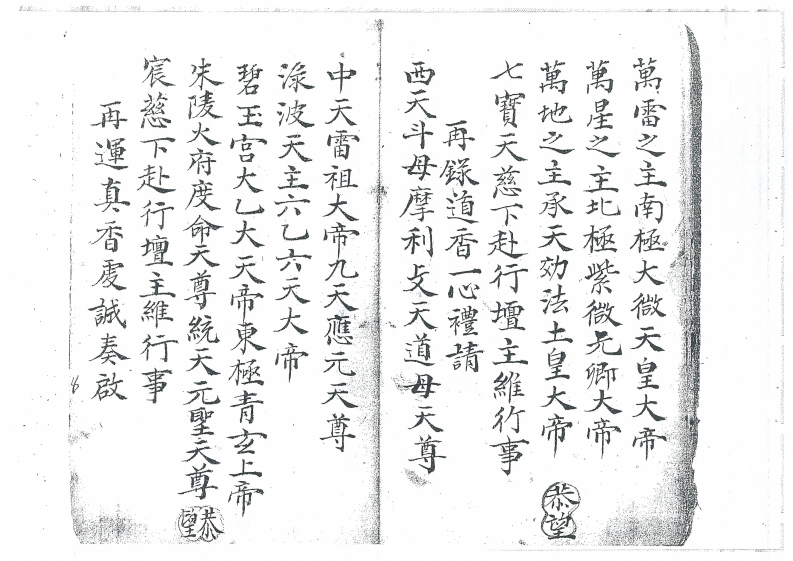 萬雷之主南極大微天皇大帝
萬星之主北極紫微元卿大帝
萬地之主承天効法土皇大帝
恭望
七寶天慈下赴行壇主維行事
再錄道香一心禮請
西天斗母摩利攴天道母天尊
中天雷祖大帝九天應元天尊
淥波天主六乙六天大帝
碧玉宮大乙大天帝東極青玄上帝
朱陵火府度命天尊統天元聖天尊
恭望
宸慈下赴行壇主維行事
再運真香虔誠奏啟